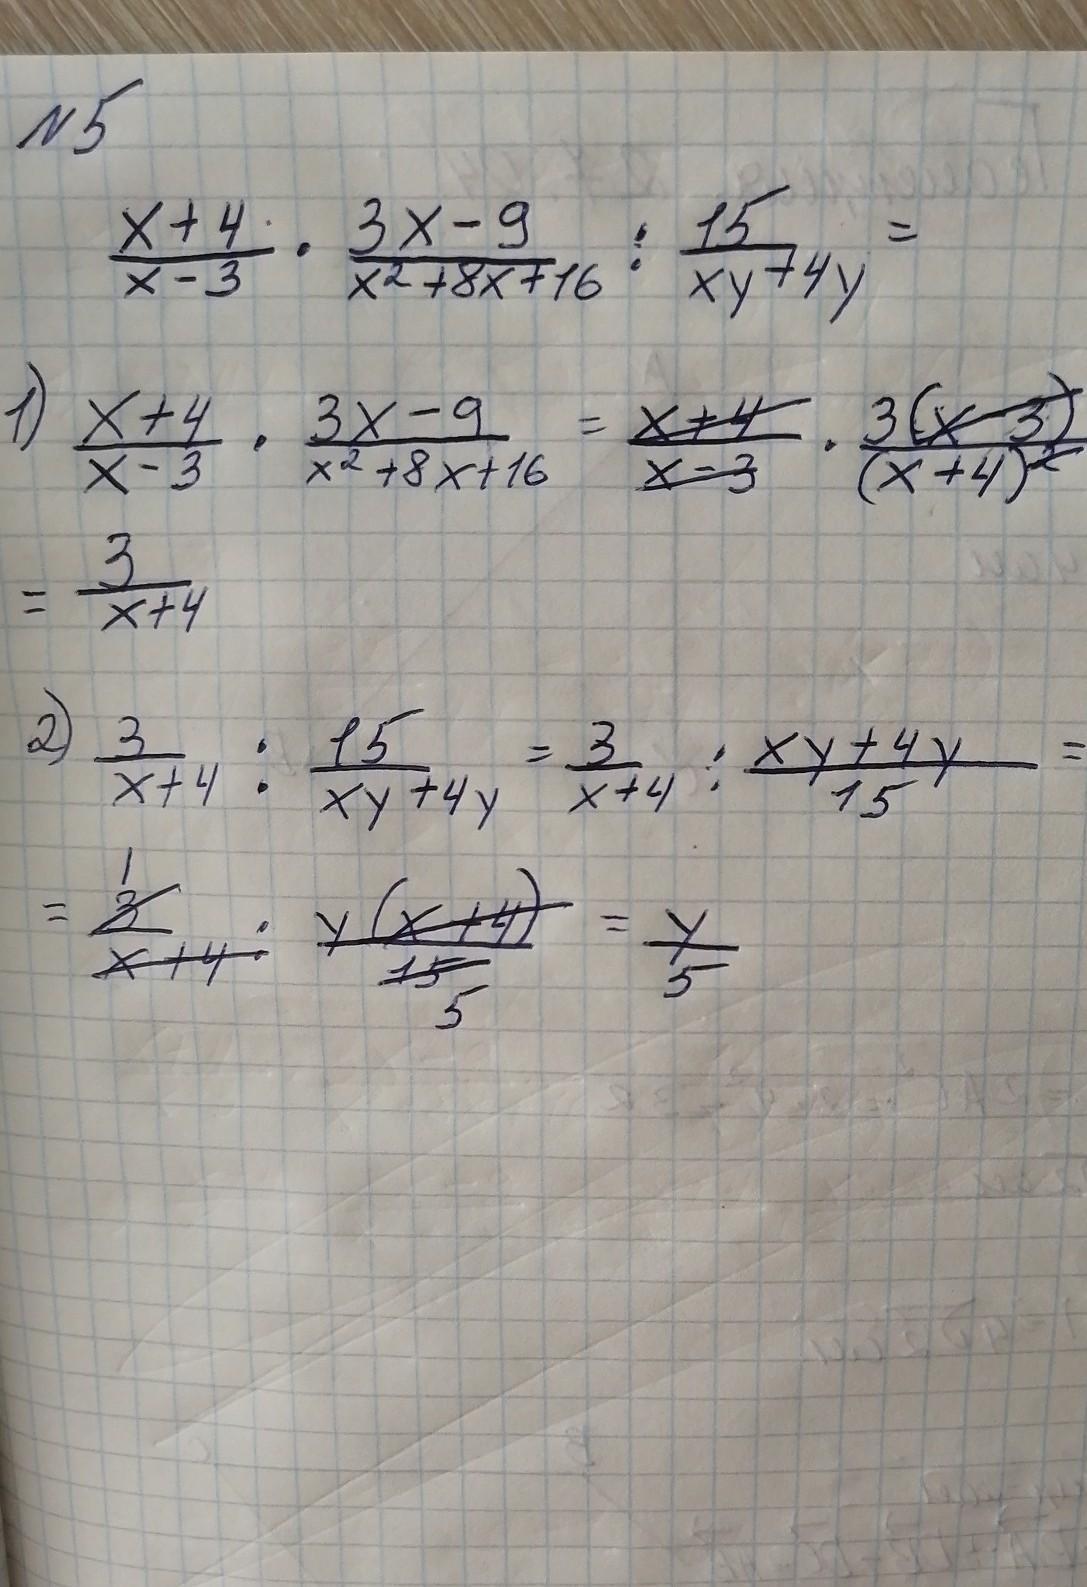 №5
x+4/x-3 · 3x-9/x²+8x+16 : 15/xy+4y =
1) x+4/x-3 · 3x-9/x²+8x+16 = x+4/x-3 · 3(x-3)/(x+4)²
= 3/x+4
2) 3/x+4 : 15/xy+4y = 3/x+4 : xy+4y/15 =
= 3 1/x+4 : y(x+4)/15 5 = y/5